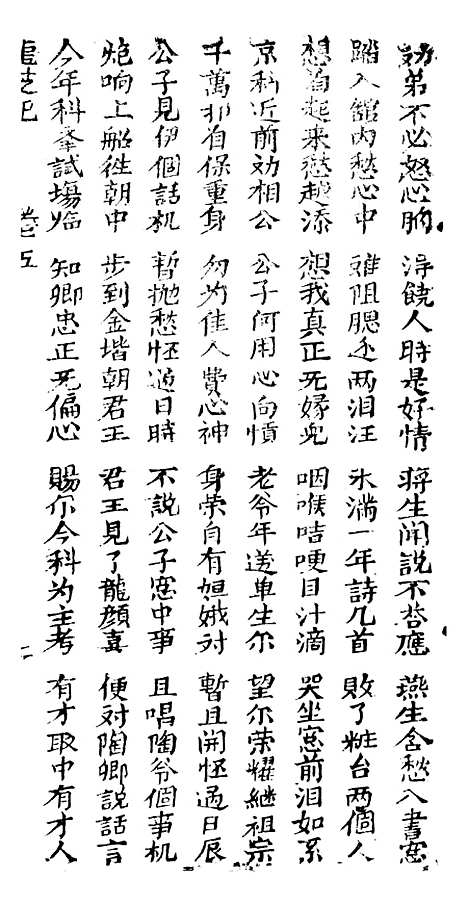 効弟不必怒心胸 淂饶人時是好情 蒋生闻說不荅應 燕生含愁入書窓
踏入館内愁心中 难阻腮边两泪汪 氷满一年詩几首 敗了粧台两個人
想自起来愁越添 想我真正无縁兜 咽喉咭哽目汁滴 哭坐窓前泪如系
京科近前効相公 公子何用心向慣 老爷年迈单生尔 望尔荣耀継祖宗
千萬自保重身 勿为佳人費心神 身荣自有姮娥对 暫且開怪過日辰
公子見伊個話机 暫抛愁怪過日時 不說公子窓中事 且唱陶爷個事机
炮响上船徃朝中 步到金堦朝君王 君王見了龍颜喜 便对陶卿說話言
今年科举試塲临 知卿忠正无偏心 賜尔今科为主考 有才取中有才人
卷之五 二